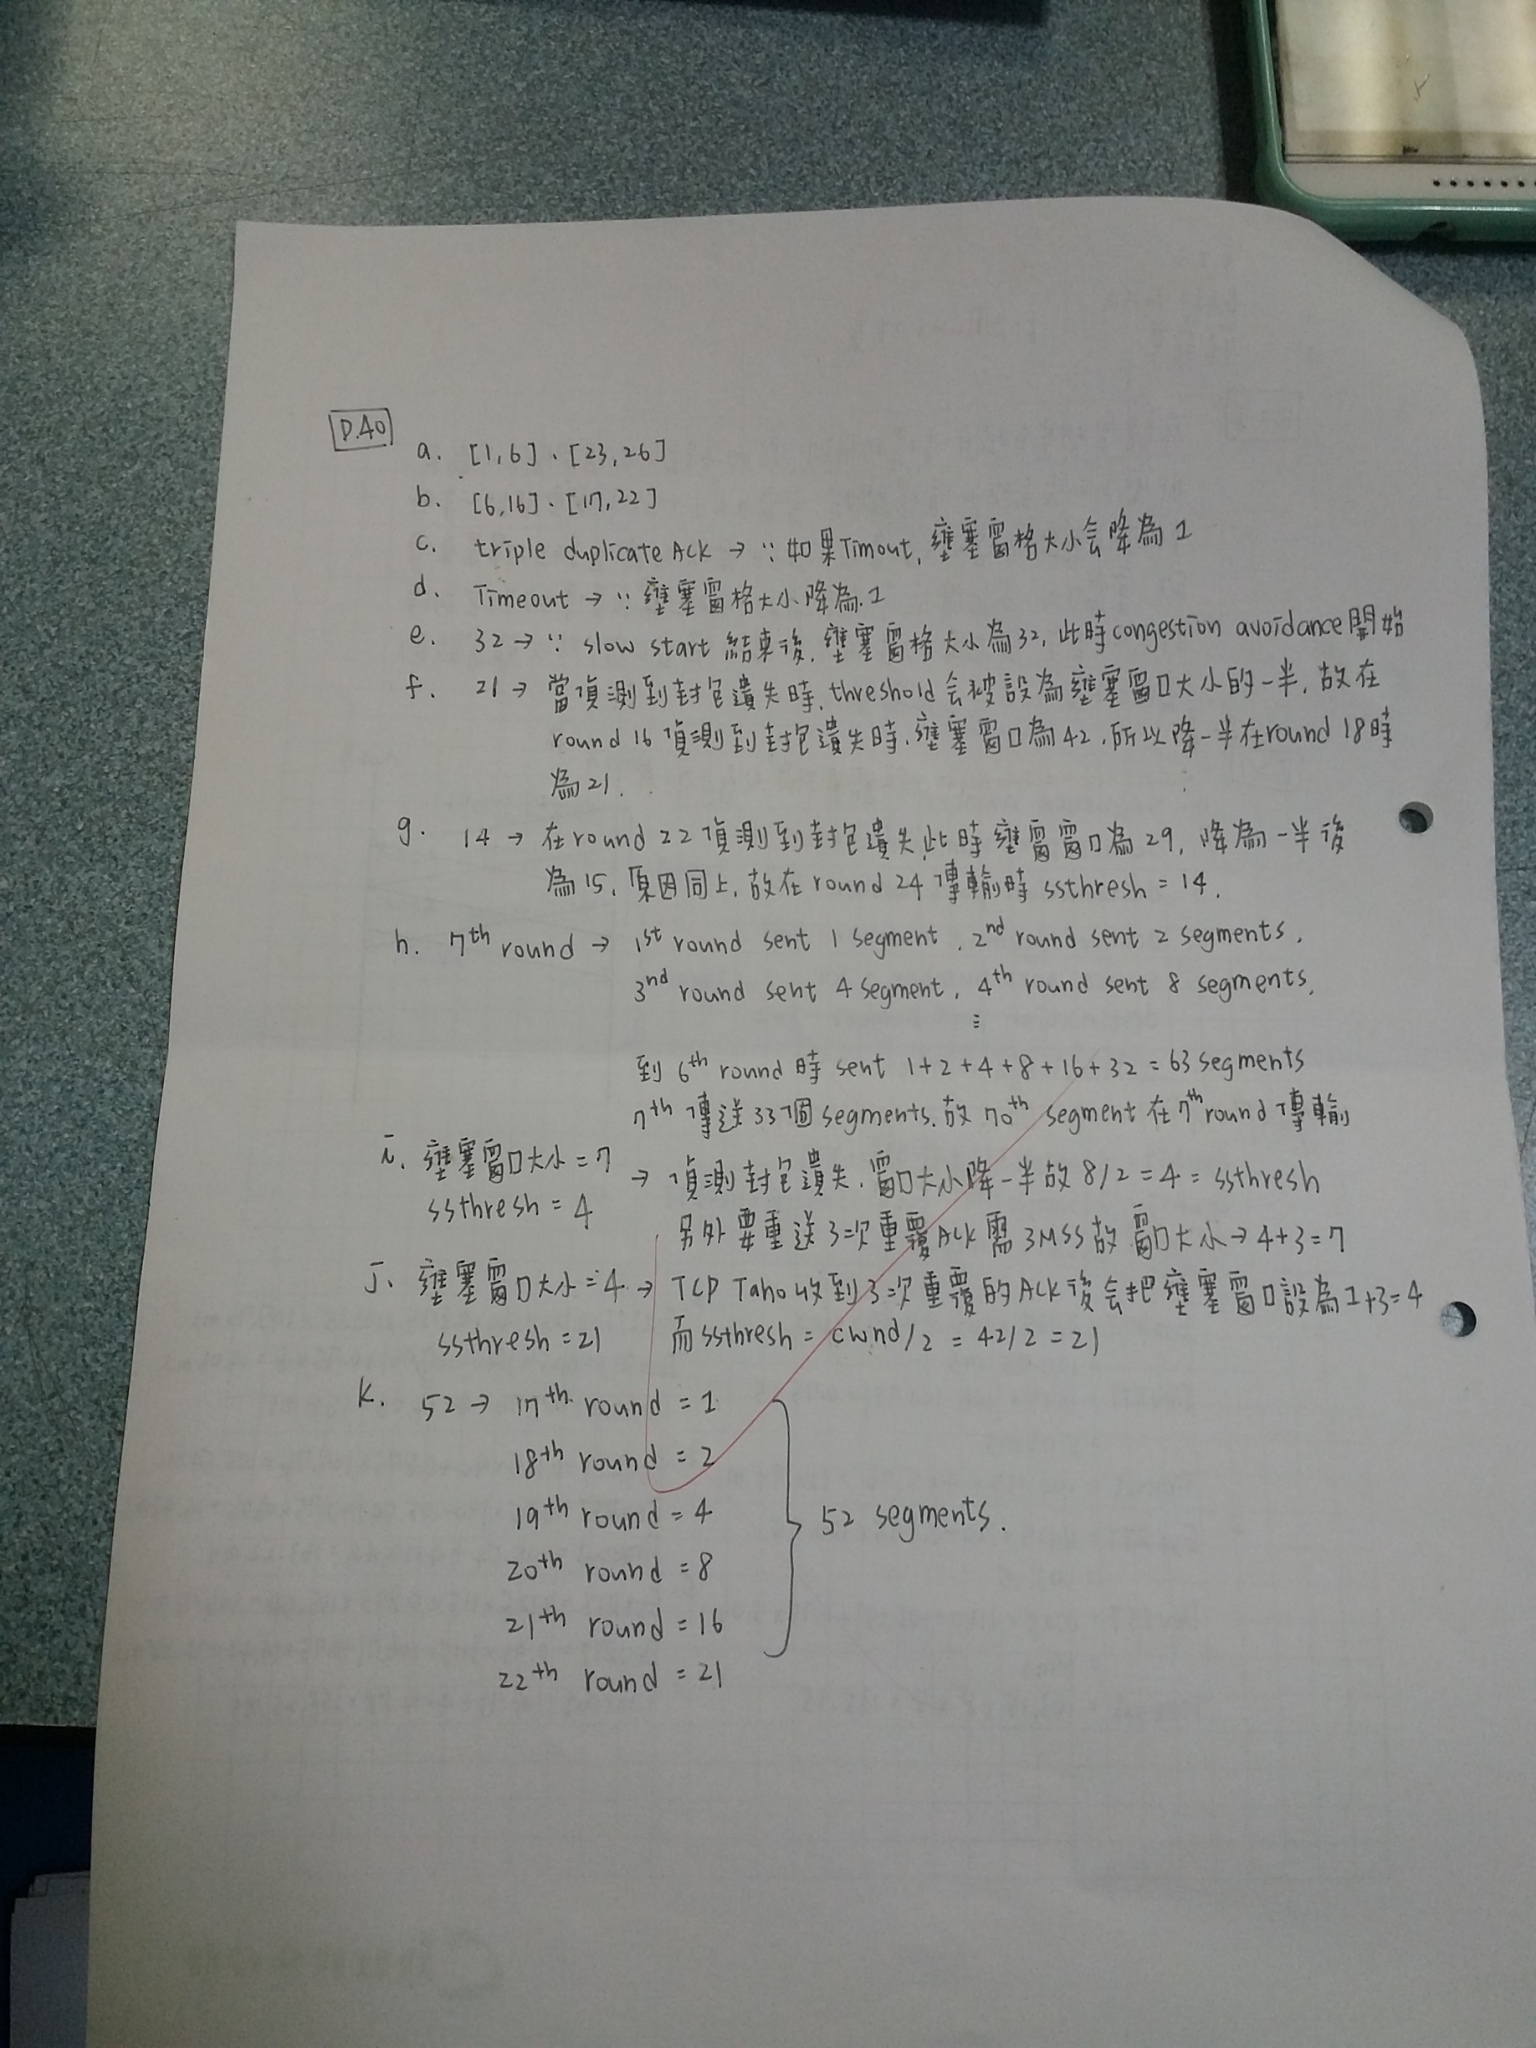 P.40
a. [1,6]、[23,26]
b. [6,16]、[17,22]
c. triple duplicate ACK → ∵ 如果Timout, 壅塞窗格大小会降為1
d. Timeout → ∵ 壅塞窗格大小降為1
e. 32 → ∵ slow start 結束後, 壅塞窗格大小為32, 此時congestion avoidance開始
f. 21 → 當偵測到封包遺失時, threshold会被設為壅塞窗口大小的一半, 故在
round 16 偵測到封包遺失時, 壅塞窗口為42, 所以降一半在round 18時
為21.
g. 14 → 在round 22偵測到封包遺失此時壅窗窗口為29, 降為一半後
為15, 原因同上, 故在round 24傳輸時 ssthresh = 14.
h. 7th round → 1st round sent 1 segment, 2nd round sent 2 segments,
3nd round sent 4 segment, 4th round sent 8 segments,
⋮
到 6th round 時 sent 1+2+4+8+16+32 = 63 segments
7th 傳送33個segments, 故 70th segment 在7th round傳輸
i. 壅塞窗口大小 = 7 → 偵測封包遺失, 窗口大小降一半故 8/2 = 4 = ssthresh
ssthresh = 4 另外要重送3次重覆ACK需3MSS故窗口大小→4+3=7
j. 壅塞窗口大小 = 4 → TCP Taho收到3次重覆的ACK後会把壅塞窗口設為1+3=4
ssthresh = 21 而ssthresh = cwnd/2 = 42/2 = 21
k. 52 → 17th round = 1
18th round = 2
19th round = 4
52 segments.
20th round = 8
21th round = 16
22th round = 21